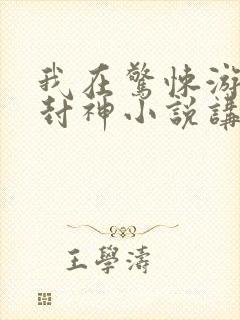 我在驚悚游
封神小說講
王學濤